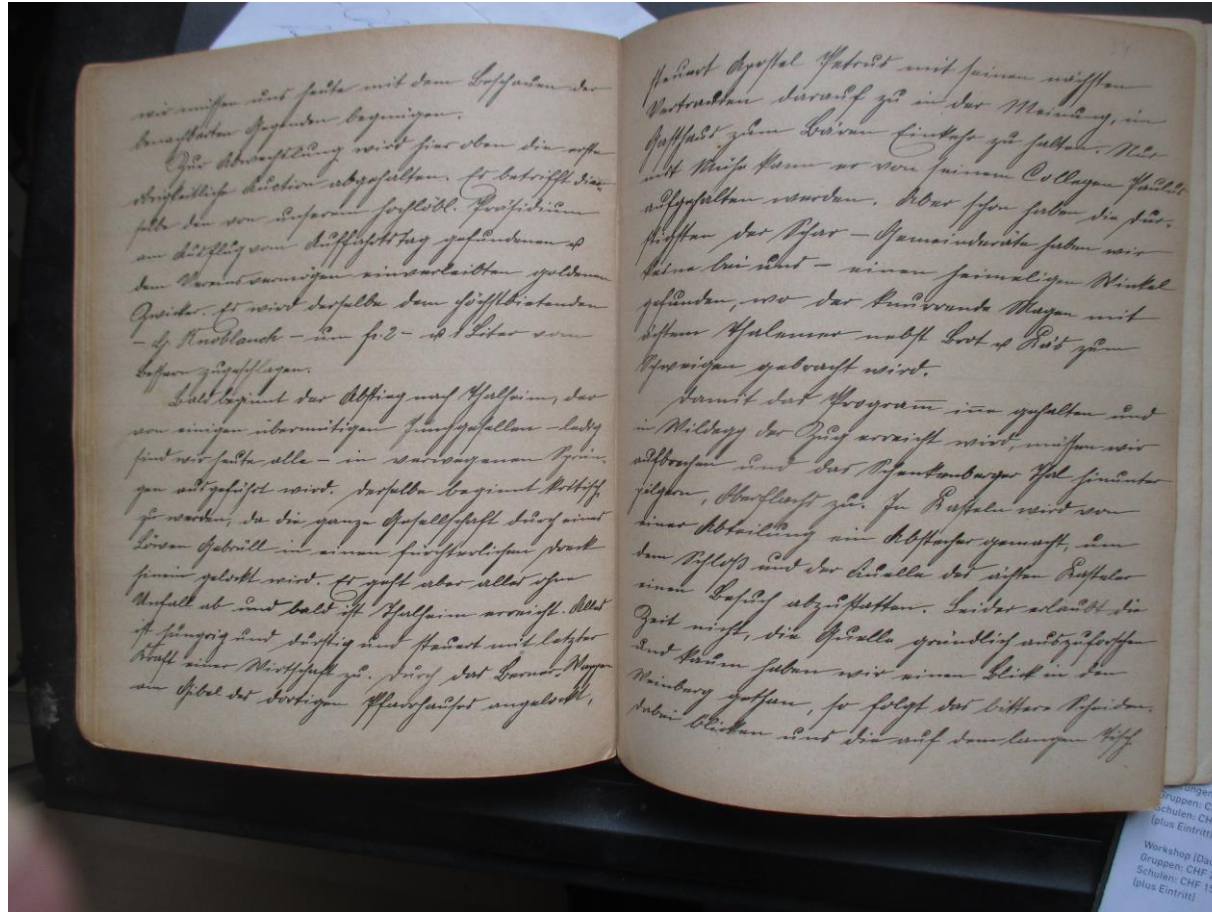 wir müssen uns heute mit dem Beschauen der
benachbarten Gegenden begnügen.
Zur Abwechslung wird hier oben die erste
obrigkeitliche Auction abgehalten. Es betrifft die-
selbe den von unserem hochlöbl. Präsidium
am Ausflug vom Auffahrtstag gefundenen u
dem Vereinsvermögen einverleibten goldenen
Zwicker. Es wird derselbe dem Höchstbietenden
– Knoblauch – um fr. 2 – u 1 Liter vom
Bessern zugeschlagen.
Bald beginnt der Abstieg nach Thalheim, der
von einigen übermütigen Junggesellen – ledig
sind wir heute alle – in verwegenen Sprün-
gen ausgeführt wird. Derselbe beginnt kritisch
zu werden, da die ganze Gesellschaft durch eines
Löwen Gebrüll in einen fürchterlichen Dreck
hinein gelockt wird. Es geht aber alles ohne
Unfall ab und bald ist Thalheim erreicht. Alles
ist hungrig und durstig und steuert mit letzter
Kraft einer Wirtschaft zu. Durch das Berner-Wappen
am Gibel des dortigen Pfarrhauses angelockt,
steuert Apostel Petrus mit seinen nächsten
Vertrauten darauf zu in der Meinung, im
Gasthaus zum Bären Einkehr zu halten. Nur
mit Mühe kann er von seinem Collegen Paulus
aufgehalten werden. Aber schon haben die dur-
stigsten der Schar – Gemeinderäte haben wir
keine bei uns – einen heimeligen Winkel
gefunden, wo der knurrende Magen mit
ächtem Thalemer nebst Brot u Käs zum
Schweigen gebracht wird.
Damit das Program̅ in̅e gehalten und
in Wildegg der Zug erreicht wird, müssen wir
aufbrechen und das Schenkenberger Thal hinunter
pilgern, Oberflachs zu. In Kasteln wird von
einer Abteilung ein Abstecher gemacht, um
dem Schloß und der Quelle des ächten Kasteler
einen Besuch abzustatten. Leider erlaubt die
Zeit nicht, die Quelle gründlich auszuforschen
und kaum haben wir einen Blick in den
Weinberg gethan, so folgt das bittere Scheiden.
Dabei blicken uns die auf dem langen Tisch
Gruppen: C
Schulen: CH
(plus Eintritt)
Workshop (Dau
Gruppen: CHF
Schulen: CHF 15
(plus Eintritt)